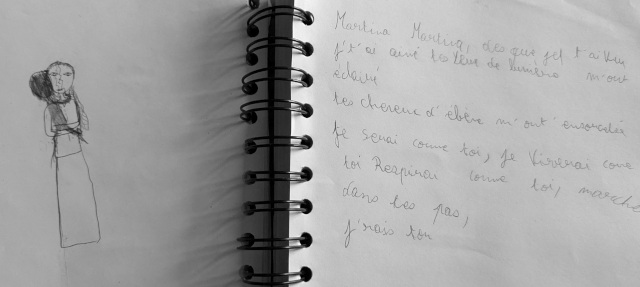 Martina Martina, dès que je t'ai vu
j't'ai aimé tes yeux de lumière m'ont
éclairé
tes cheveux d'ébène m'ont ensorcelée
Je serai comme toi, je vivrai come
toi Respirai comme toi, marche
dans tes pas,
j'irais toi